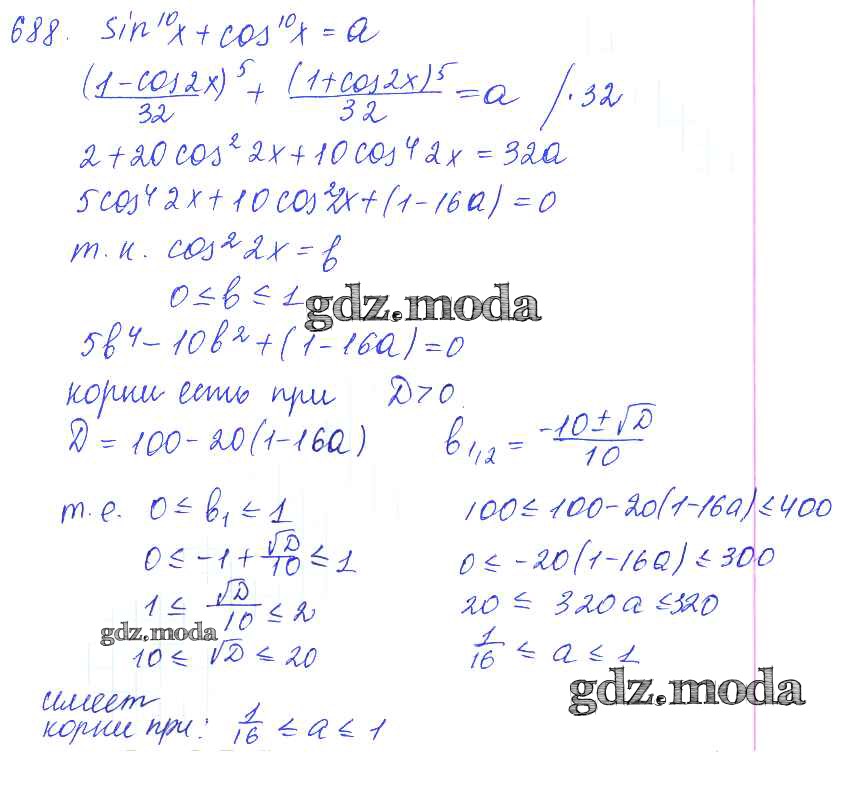 688. sin¹⁰x + cos¹⁰x = a
(1-cos2x)⁵/32 + (1+cos2x)⁵/32 = a /·32
2 + 20cos² 2x + 10cos⁴ 2x = 32a
5cos⁴ 2x + 10cos² 2x + (1-16a) = 0
т.к. cos² 2x = b
0 ≤ b ≤ 1
gdz.moda
5b⁴ - 10b² + (1-16a) = 0
корни есть при D > 0
D = 100 - 20(1-16a) b₁,₂ = (-10 ± √D)/10
т.е. 0 ≤ b₁ ≤ 1
0 ≤ -1 + √D/10 ≤ 1
1 ≤ √D/10 ≤ 2
gdz.moda
10 ≤ √D ≤ 20
100 ≤ 100 - 20(1-16a) ≤ 400
0 ≤ -20(1-16a) ≤ 300
20 ≤ 320a ≤ 320
1/16 ≤ a ≤ 1
gdz.moda
имеет
корни при: 1/16 ≤ a ≤ 1